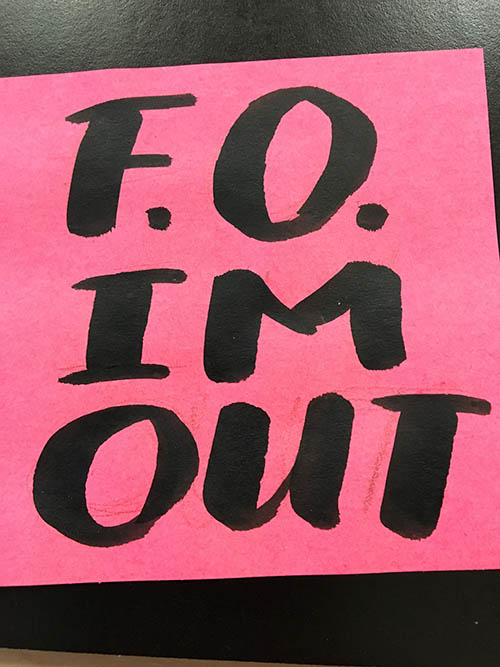 F.O.
IM
OUT